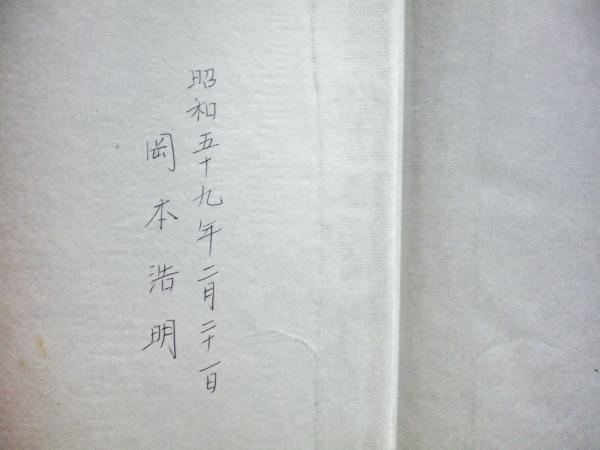 昭和五十九年二月二十一日
岡本浩明